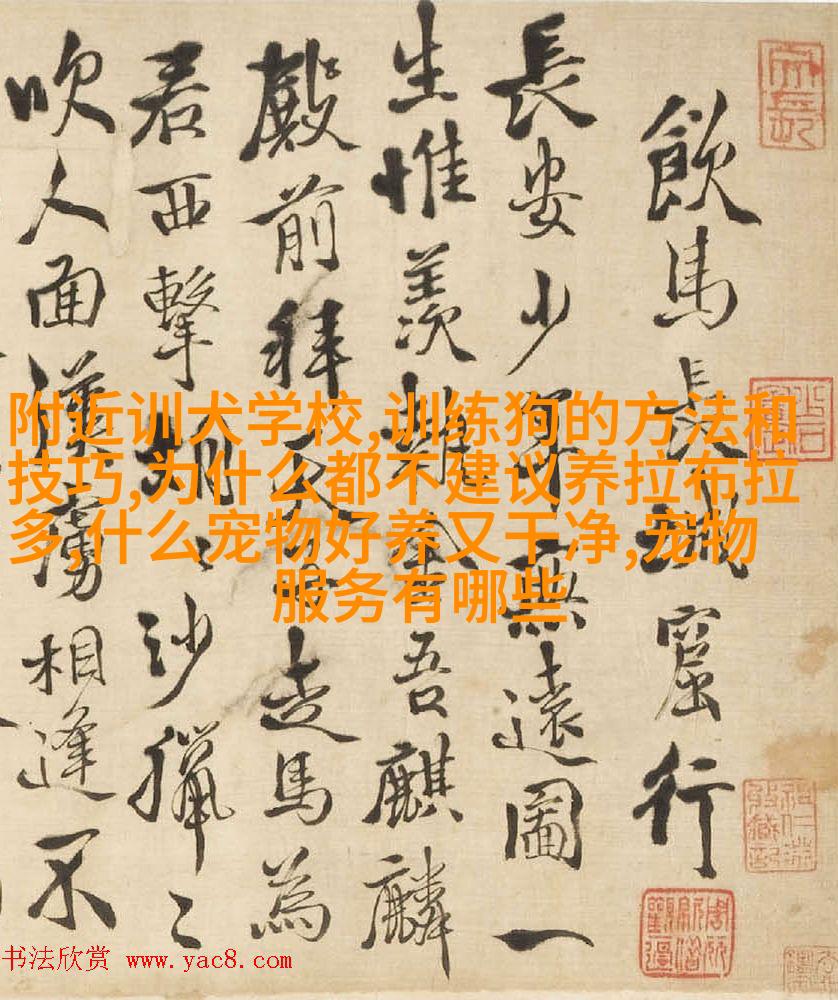 飲馬長城窟行
長安少年無遠圖一
生惟羨執金吾麒麟
殿前拜天子走馬為
君西擊胡〻沙獵〻
吹人面漢虜相逢不
附近训犬学校,训练狗的方法和
技巧,为什么都不建议养拉布拉
多,什么宠物好养又干净,宠物
服务有哪些
书法欣赏 www.yac8.com